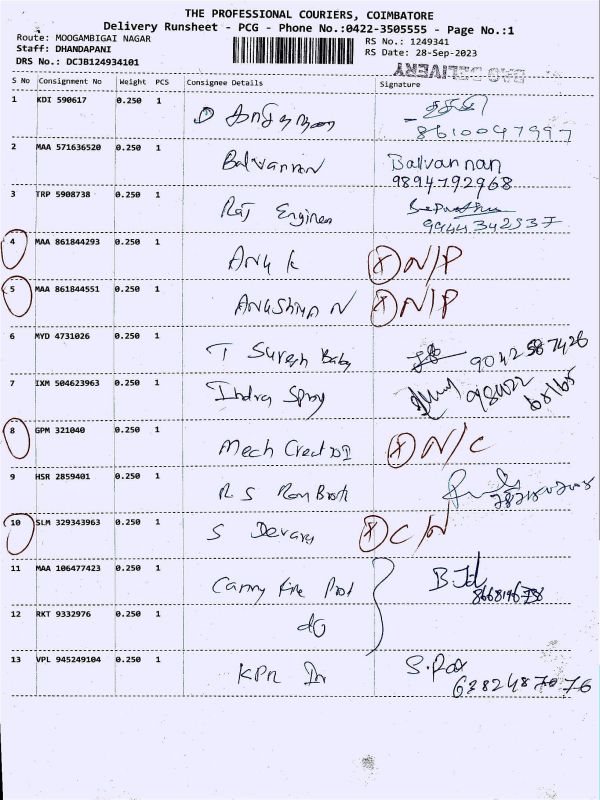 THE PROFESSIONAL COURIERS, COIMBATORE
Delivery Runsheet - PCG - Phone No.:0422-3505555 - Page No.:1
Route: MOOGAMBIGAI NAGAR
RS No.: 1249341
Staff: DHANDAPANI
RS Date: 28-Sep-2023
DRS No.: DCJB124934101
BAG DELIVERY
S No Consignment No Weight PCS Consignee Details Signature
1 KDI 590617 0.250 1
8610047997
2 MAA 571636520 0.250 1 Balvannan Balvannan
9894792968
3 TRP 5908738 0.250 1 Raj Engineer
9944342537
4 MAA 861844293 0.250 1 Anu K (X) N/P
5 MAA 861844551 0.250 1 Anushiya N (X) N/P
6 MYD 4731026 0.250 1 T Suresh Baby 9042587426
7 IXM 504623963 0.250 1 Indra Spray 98422
8 GPM 321040 0.250 1 Mech (X) N/C
9 HSR 2859401 0.250 1 R S Ram Broth
10 SLM 329343963 0.250 1 S Devaraj (X) C/N
11 MAA 106477423 0.250 1 Carry Fire Prod
12 RKT 9332976 0.250 1 do
13 VPL 945249104 0.250 1 KPR In S.
6382487076